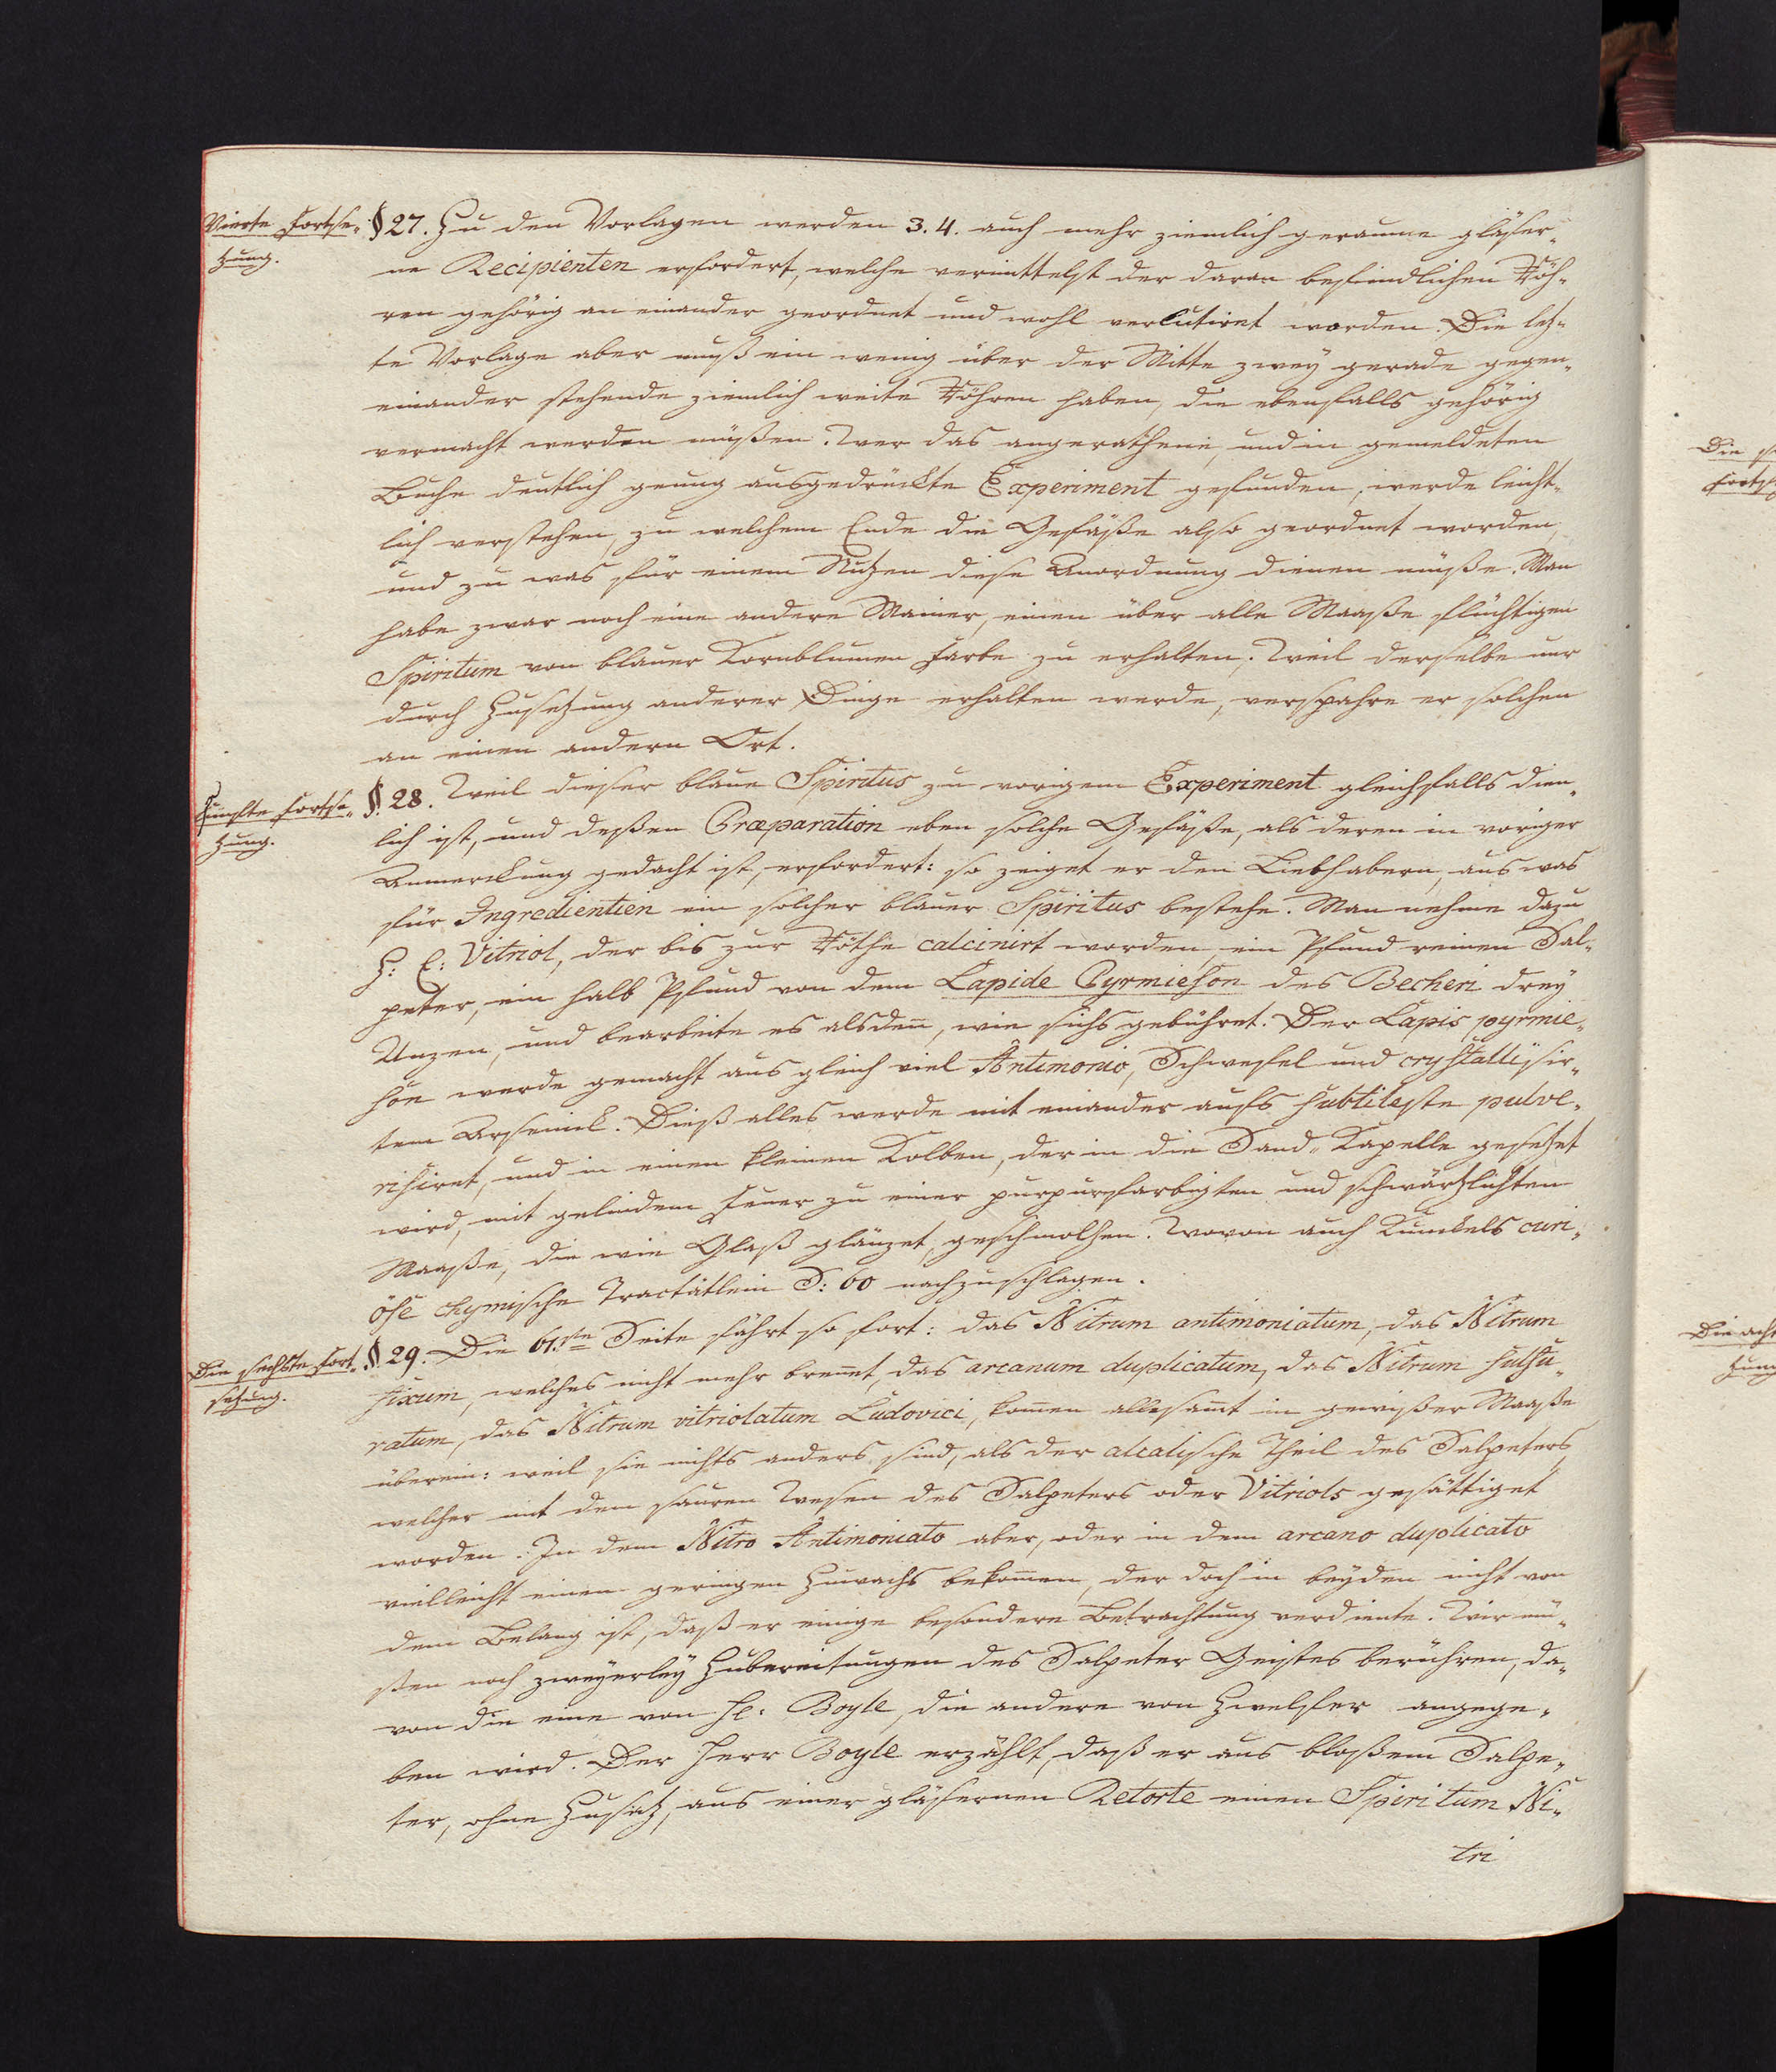 Vierte Fortse„
tzung.
§ 27. Zu den Vorlagen werden 3. 4. auch mehr ziemlich geraume gläser„
ne Recipienten erfordert, welche vermittelst der daran befindlichen Röh„
ren gehörig an einander geordnet und wohl verlutiret worden. Die letz„
te Vorlage aber muß ein wenig über der Mitte zwey gerade gegen„
einander stehende ziemlich weite Röhren haben, die ebenfalls gehörig
vermacht werden müßen. Wer das angerathene, und in gemeldeten
Buche deutlich genug ausgedrückte Experiment gefunden, werde leicht„
lich verstehen, zu welchem Ende die Gefäße also geordnet worden,
und zu was für einem Nutzen diese Anordnung dienen müße. Man
habe zwar noch eine andere Manier, einen über alle Maaße flüchtigen
Spiritum von blauer Kornblumen Farbe zu erhalten; Weil derselbe nur
durch Zusetzung anderer Dinge erhalten werde, verspahre er solchen
an einen andern Ort.
Fünfte Fortse„
tzung.
§. 28. Weil dieser blaue Spiritus zu vorigem Experiment gleichfalls dien„
lich ist, und deßen Præparation eben solche Gefäße, als deren in voriger
Anmerckung gedacht ist, erfordert: so zeiget er den Liebhabern, aus was
für Ingredientien ein solcher blauer Spiritus bestehe. Man nehme dazu
z: E: Vitriol, der bis zur Röthe calcinirt worden, ein Pfund reinen Sal„
peter, ein halb Pfund von dem Lapide Pyrmieson des Becheri drey
Unzen, und bearbeite es alsdeñ, wie sichs gebühret. Der Lapis pyrmie„
son werde gemacht aus gleich viel Antimonio, Schwefel und crystallisir„
tem Arsenick. Dieß alles werde mit einander aufs subtileste pulve„
risiret, und in einen kleinen Kolben, der in die Sand„Kapelle gesetzet
wird, mit gelindem Feuer zu einer purpurfarbigten und schwärtzlichten
Maaße, die wie Glaß glänzet, geschmoltzen. Wovon auch Kunkels curi„
öse chymische Tractätlein S: 60 nachzuschlagen.
Die sechste Fort„
setzung.
§ 29. Die 61.ste Seite fährt so fort: das Nitrum antimoniatum, das Nitrum
fixum, welches nicht mehr breñet, das arcanum duplicatum, das Nitrum sulfu„
ratum, das Nitrum vitriolatum Ludovici, kom̃en allesam̃t in gewißer Maaße
überein: weil sie nichts anders sind, als der alcalische Theil des Salpeters,
welcher mit dem sauren Wesen des Salpeters oder Vitriols gesättiget
worden. In dem Nitro Antimoniato aber, oder in dem arcano duplicato
vielleicht einen geringen Zuwachs bekom̃en, der doch in beyden nicht von
dem Belang ist, daß er einige besondere Betrachtung verdiente. Wir mü„
ßen noch zweyerley Zubereitungen des Salpeter Geistes berühren, da„
von die eine von H: Boyle, die andere von Zwelfer angege„
ben wird. Der Herr Boyle erzählt, daß er aus bloßem Salpe„
ter, ohne Zusatz, aus einer gläsernen Retorte einen Spiritum Ni„
tri